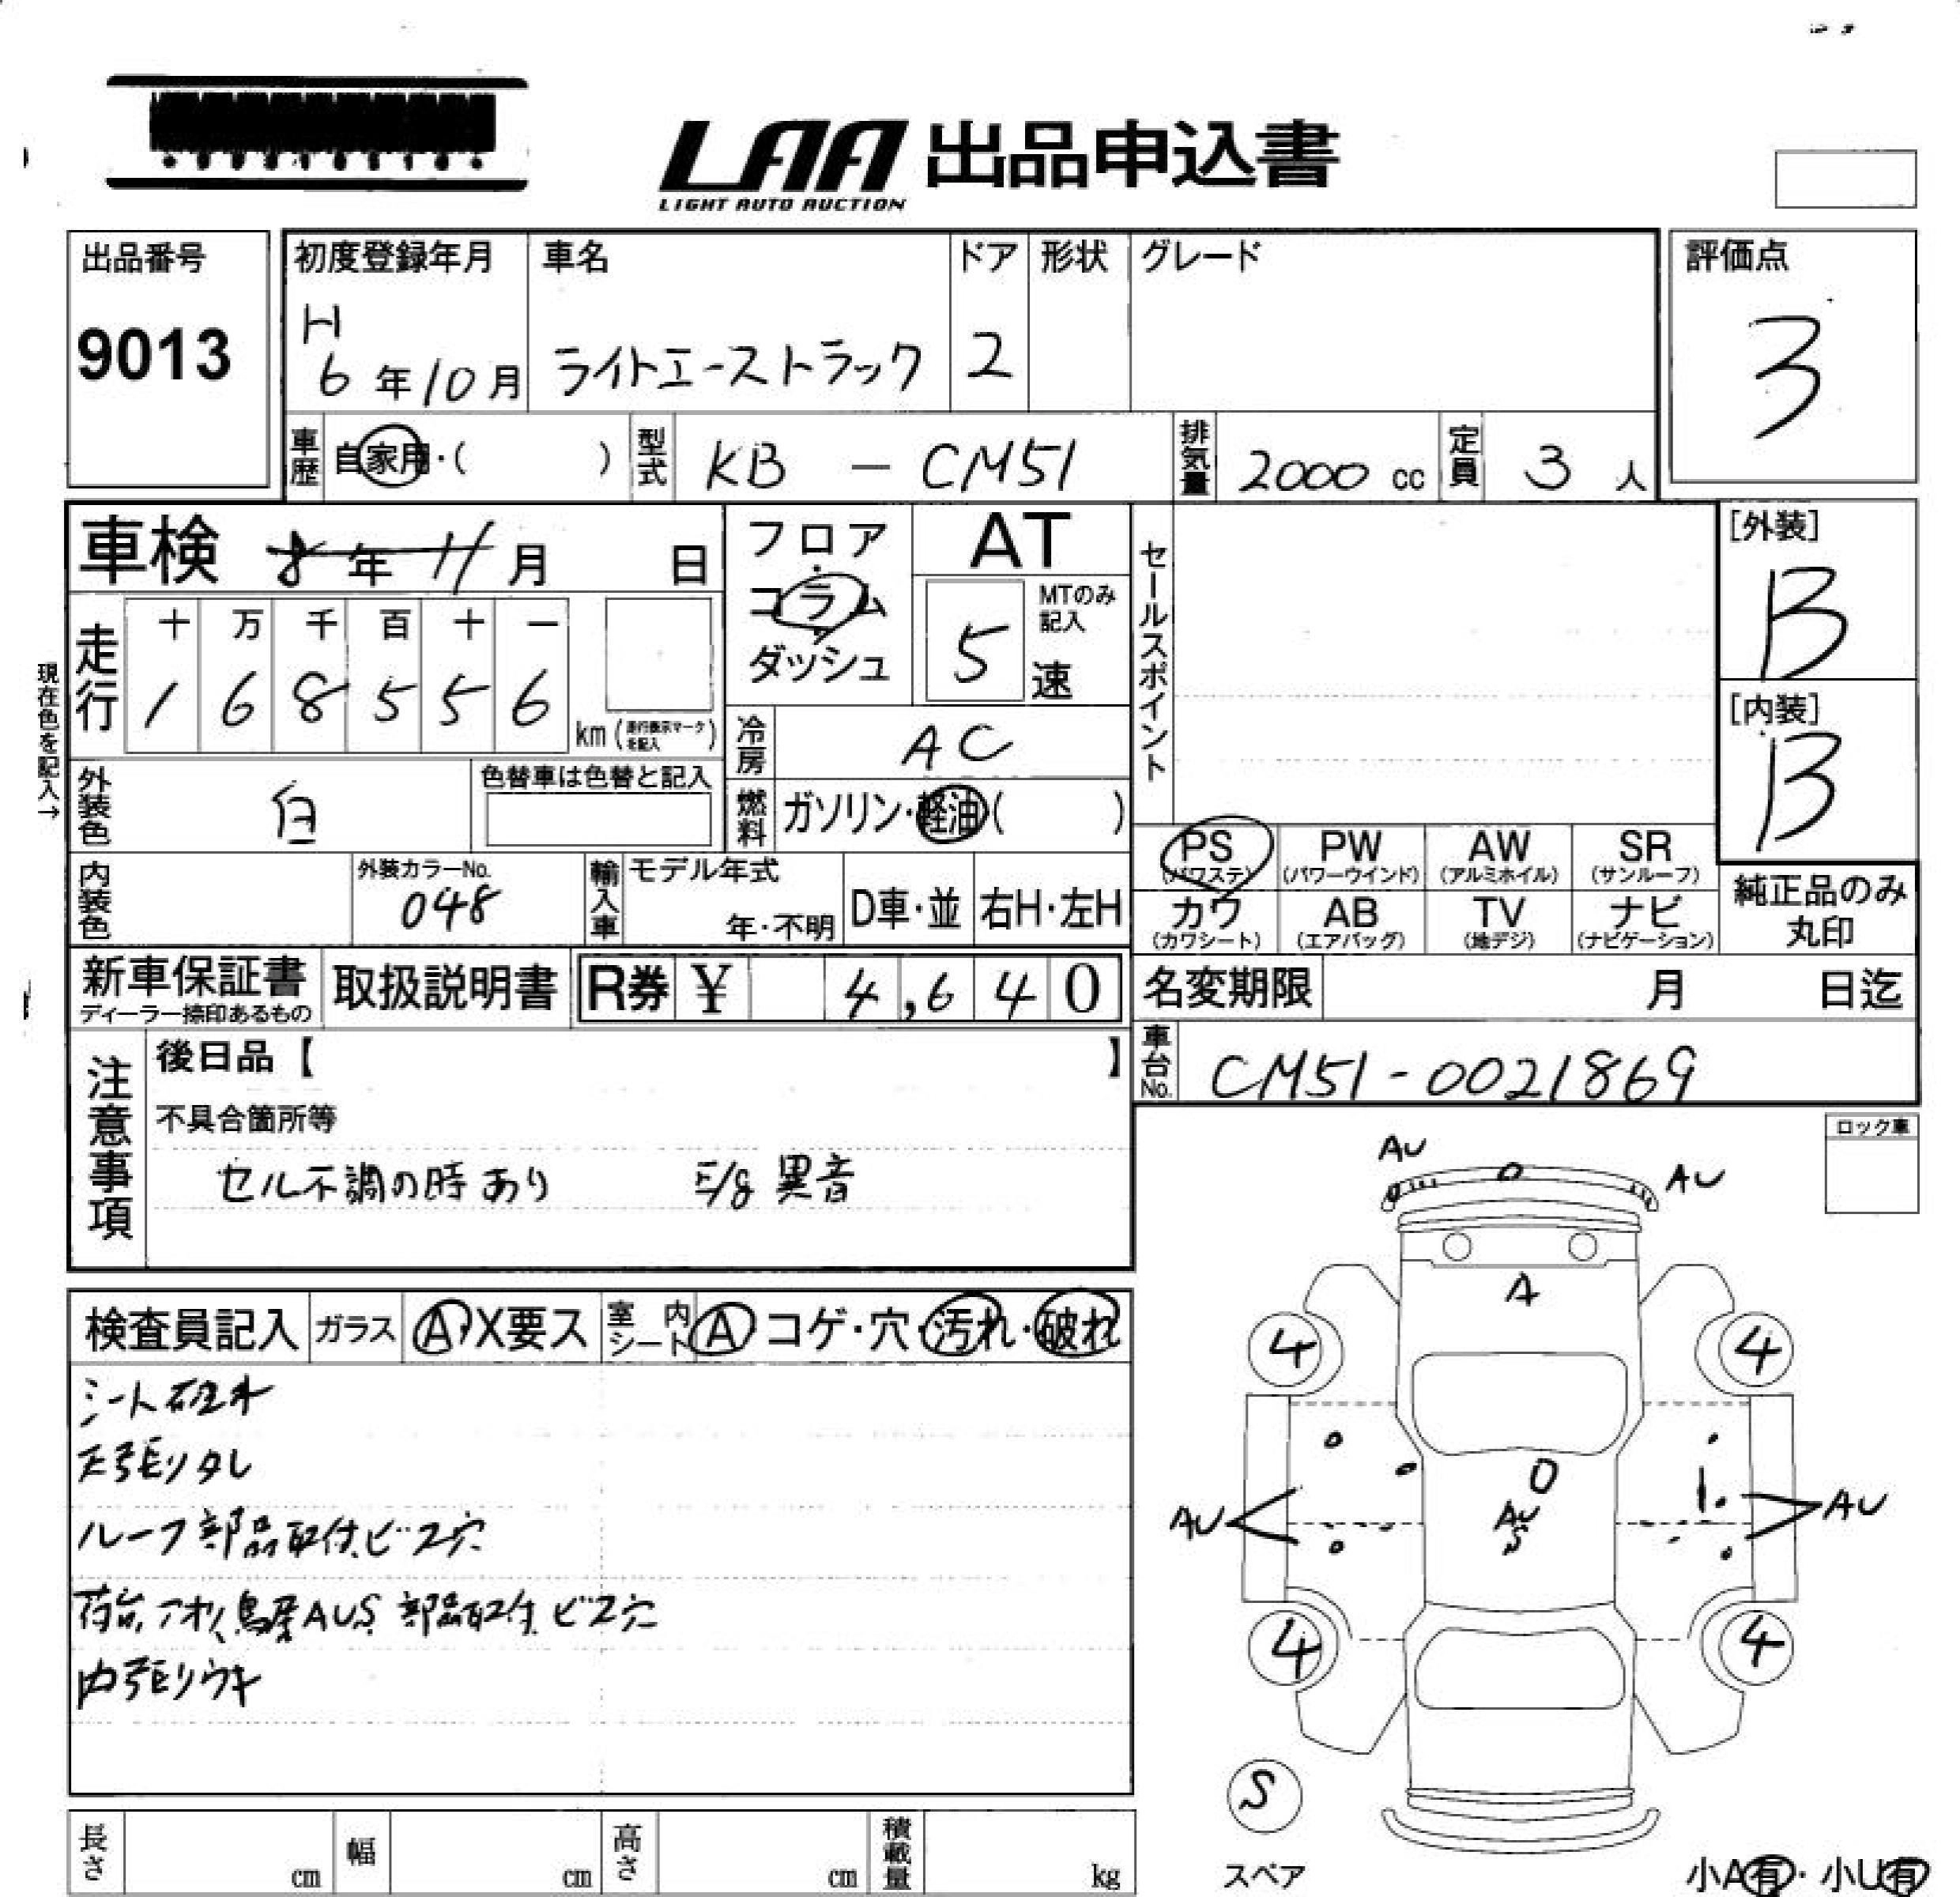 LAA 出品申込書
LIGHT AUTO AUCTION
出品番号
9013
初度登録年月
H
6年10月
車名
ライトエーストラック
ドア
2
形状
グレード
評価点
3
車歴 自家用・( )
型式 KB - CM51
排気量 2000 cc
定員 3 人
車検 8年11月 日
フロア・コラム・ダッシュ
AT
MTのみ記入
5 速
セールスポイント
[外装]
B
[内装]
B
現在色を記入→
走行
十 万 千 百 十 一
1 6 8 5 5 6
km (走行表示マークを記入)
冷房 AC
外装色 白
色替車は色替と記入
燃料 ガソリン・軽油( )
PS (パワステ)
PW (パワーウインド)
AW (アルミホイル)
SR (サンルーフ)
カワ (カワシート)
AB (エアバッグ)
TV (地デジ)
ナビ (ナビゲーション)
純正品のみ
丸印
内装色
外装カラーNo.
048
輸入車
モデル年式
年・不明
D車・並
右H・左H
新車保証書
ディーラー捺印あるもの
取扱説明書
R券 ¥ 4,640
名変期限 月 日迄
車台No. CM51-0021869
注意事項
後日品【 】
不具合箇所等
セル不調の時あり E/g 異音
ロック車
検査員記入
ガラス A・X要ス
室内シート A・コゲ・穴・汚れ・破れ
シート破れ
天張りタレ
ルーフ部品取付ビス穴
荷台アオリ鳥居AUS 部品取付ビス穴
内張りウキ
AU
AU
A
4 4
O
AU
S
AU
AU
4 4
S
スペア
小A有・小U有
長さ cm
幅 cm
高さ cm
積載量 kg